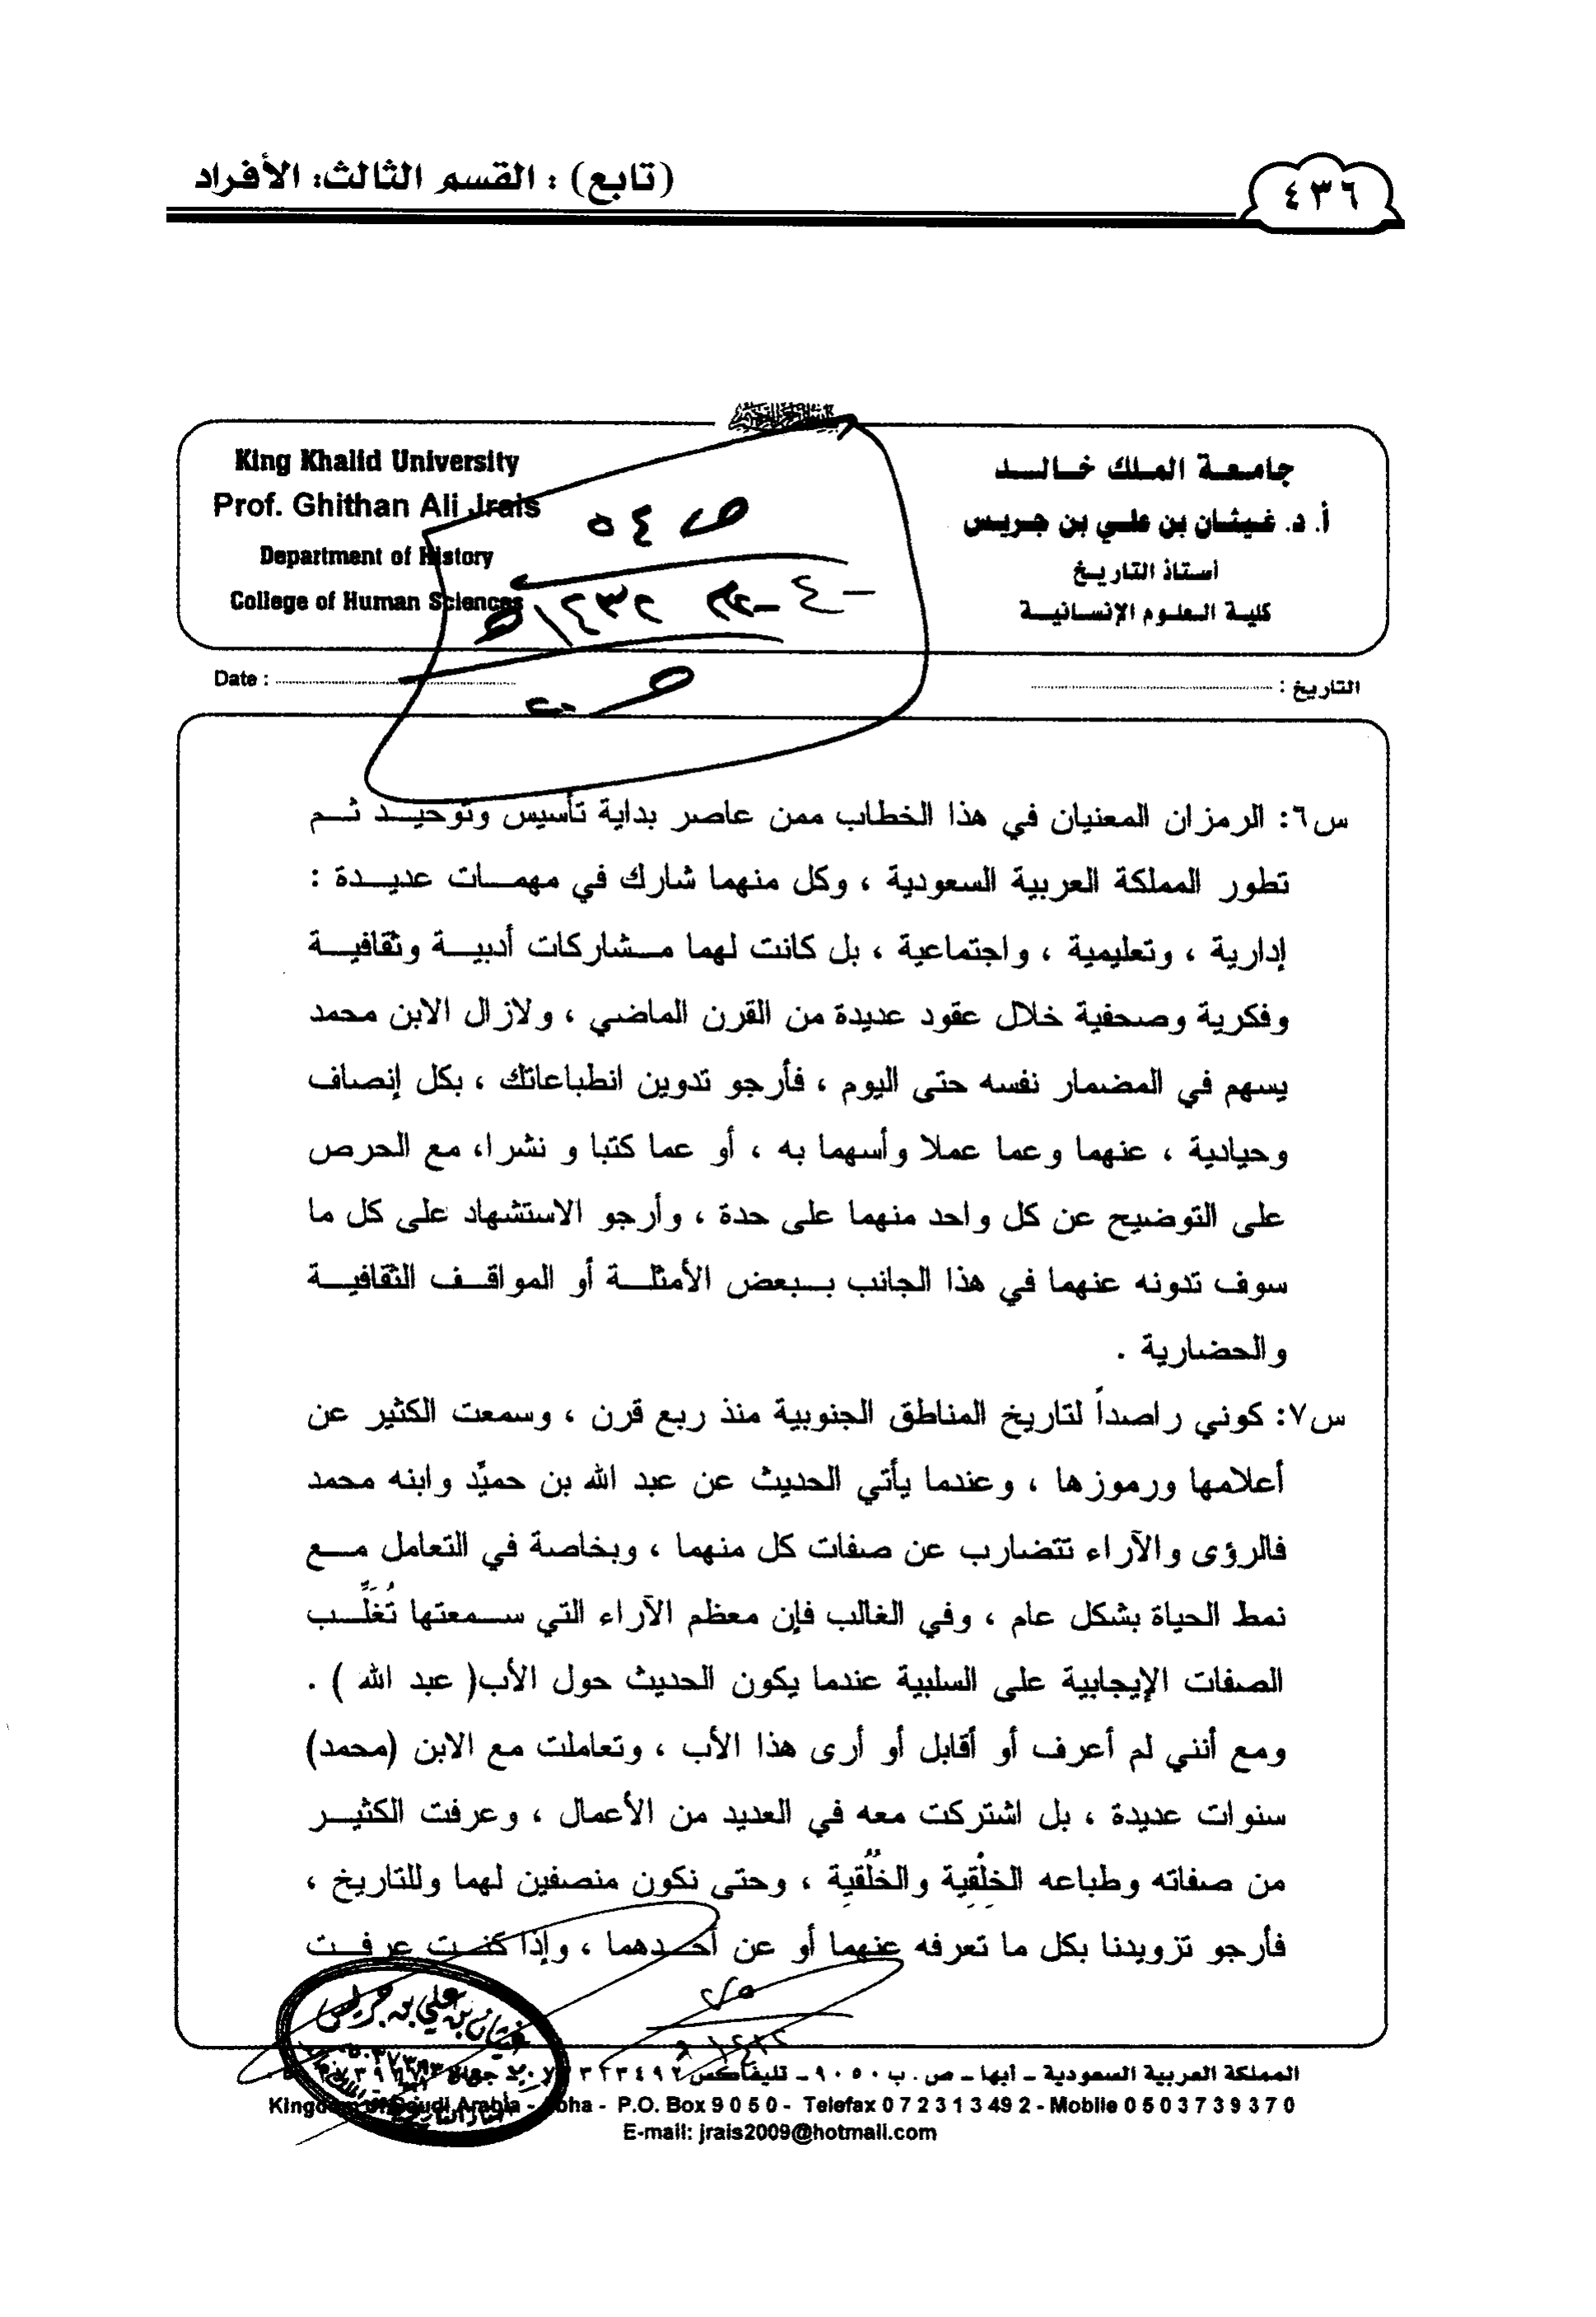 (تابع) : القسم الثالث: الأفراد
٤٣٦
King Khalid University
Prof. Ghithan Ali Jrais
Department of History
College of Human Sciences
جامعة الملك خالد
أ. د. غيثان بن علي بن جريس
أستاذ التاريخ
كلية العلوم الإنسانية
Date :
التاريخ :
س٦: الرمزان المعنيان في هذا الخطاب ممن عاصر بداية تأسيس وتوحيد ثم
تطور المملكة العربية السعودية ، وكل منهما شارك في مهمات عديدة :
إدارية ، وتعليمية ، واجتماعية ، بل كانت لهما مشاركات أدبية وثقافية
وفكرية وصحفية خلال عقود عديدة من القرن الماضي ، ولازال الابن محمد
يسهم في المضمار نفسه حتى اليوم ، فأرجو تدوين انطباعاتك ، بكل إنصاف
وحيادية ، عنهما وعما عملا وأسهما به ، أو عما كتبا و نشرا، مع الحرص
على التوضيح عن كل واحد منهما على حدة ، وأرجو الاستشهاد على كل ما
سوف تدونه عنهما في هذا الجانب ببعض الأمثلة أو المواقف الثقافية
والحضارية .
س٧: كوني راصداً لتاريخ المناطق الجنوبية منذ ربع قرن ، وسمعت الكثير عن
أعلامها ورموزها ، وعندما يأتي الحديث عن عبد الله بن حميّد وابنه محمد
فالرؤى والآراء تتضارب عن صفات كل منهما ، وبخاصة في التعامل مع
نمط الحياة بشكل عام ، وفي الغالب فإن معظم الآراء التي سمعتها تُغَلِّب
الصفات الإيجابية على السلبية عندما يكون الحديث حول الأب( عبد الله ) .
ومع أنني لم أعرف أو أقابل أو أرى هذا الأب ، وتعاملت مع الابن (محمد)
سنوات عديدة ، بل اشتركت معه في العديد من الأعمال ، وعرفت الكثير
من صفاته وطباعه الخلْقِية والخُلُقِية ، وحتى نكون منصفين لهما وللتاريخ ،
فأرجو تزويدنا بكل ما تعرفه عنهما أو عن أحدهما ، وإذا كنت عرفت
غيثان بن علي بن جريس
المملكة العربية السعودية – أبها – ص . ب ٩٠٥٠ – تليفاكس
Kingdom of Saudi Arabia - Abha - P.O. Box 9 0 5 0 - Telefax 0 7 2 3 1 3 49 2 - Mobile 0 5 0 3 7 3 9 3 7 0
E-mail: jrais2009@hotmail.com